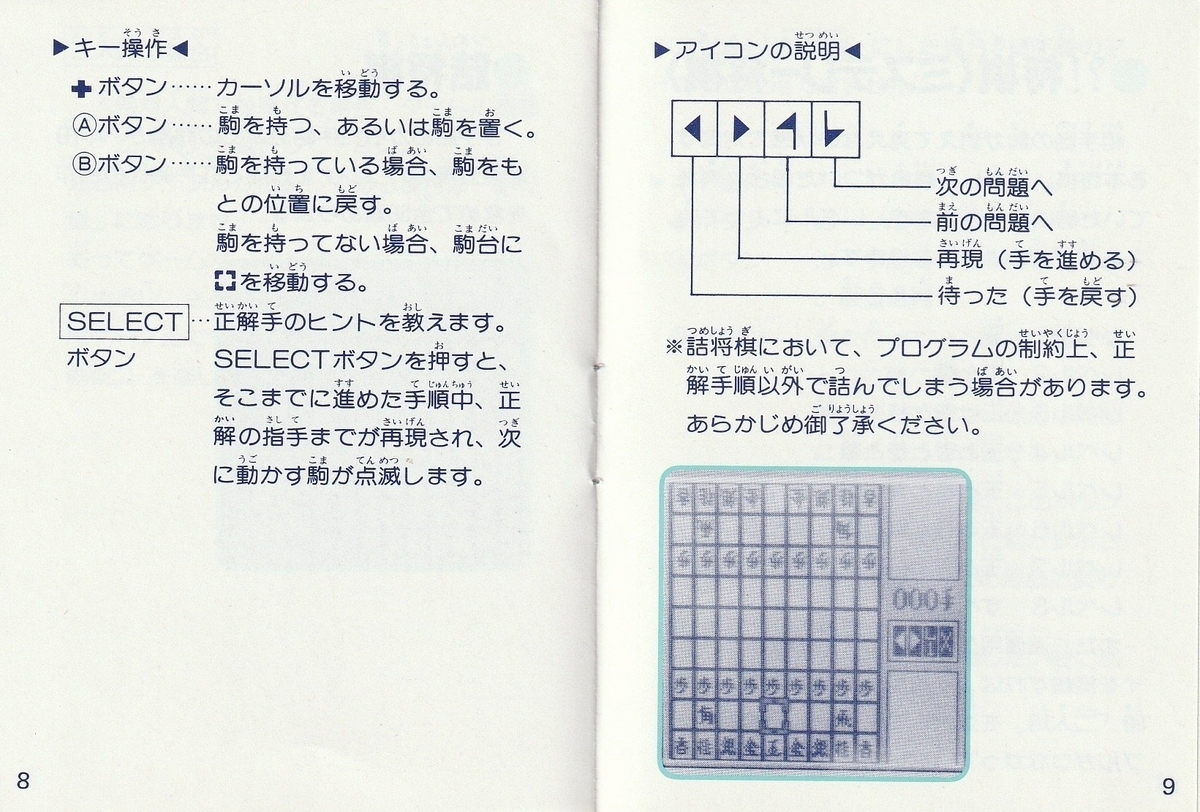 ▶キー操作◀
✚ボタン……カーソルを移動する。
Ⓐボタン……駒を持つ、あるいは駒を置く。
Ⓑボタン……駒を持っている場合、駒をも
との位置に戻す。
駒を持ってない場合、駒台に
を移動する。
SELECT…正解手のヒントを教えます。
ボタン SELECTボタンを押すと、
そこまでに進めた手順中、正
解の指手までが再現され、次
に動かす駒が点滅します。
8
▶アイコンの説明◀
次の問題へ
前の問題へ
再現（手を進める）
待った（手を戻す）
※詰将棋において、プログラムの制約上、正
解手順以外で詰んでしまう場合があります。
あらかじめ御了承ください。
000手
歩歩歩歩歩歩歩歩歩
角
9